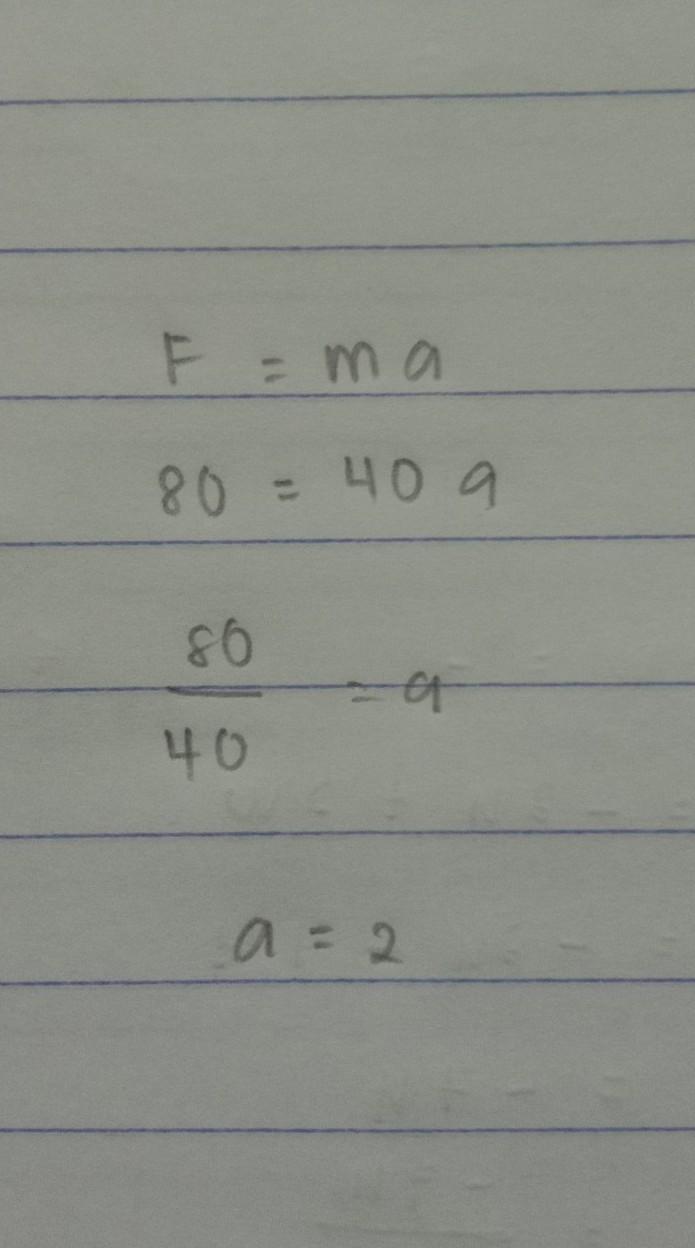 F = ma
80 = 40 a
80
40 = a
a = 2